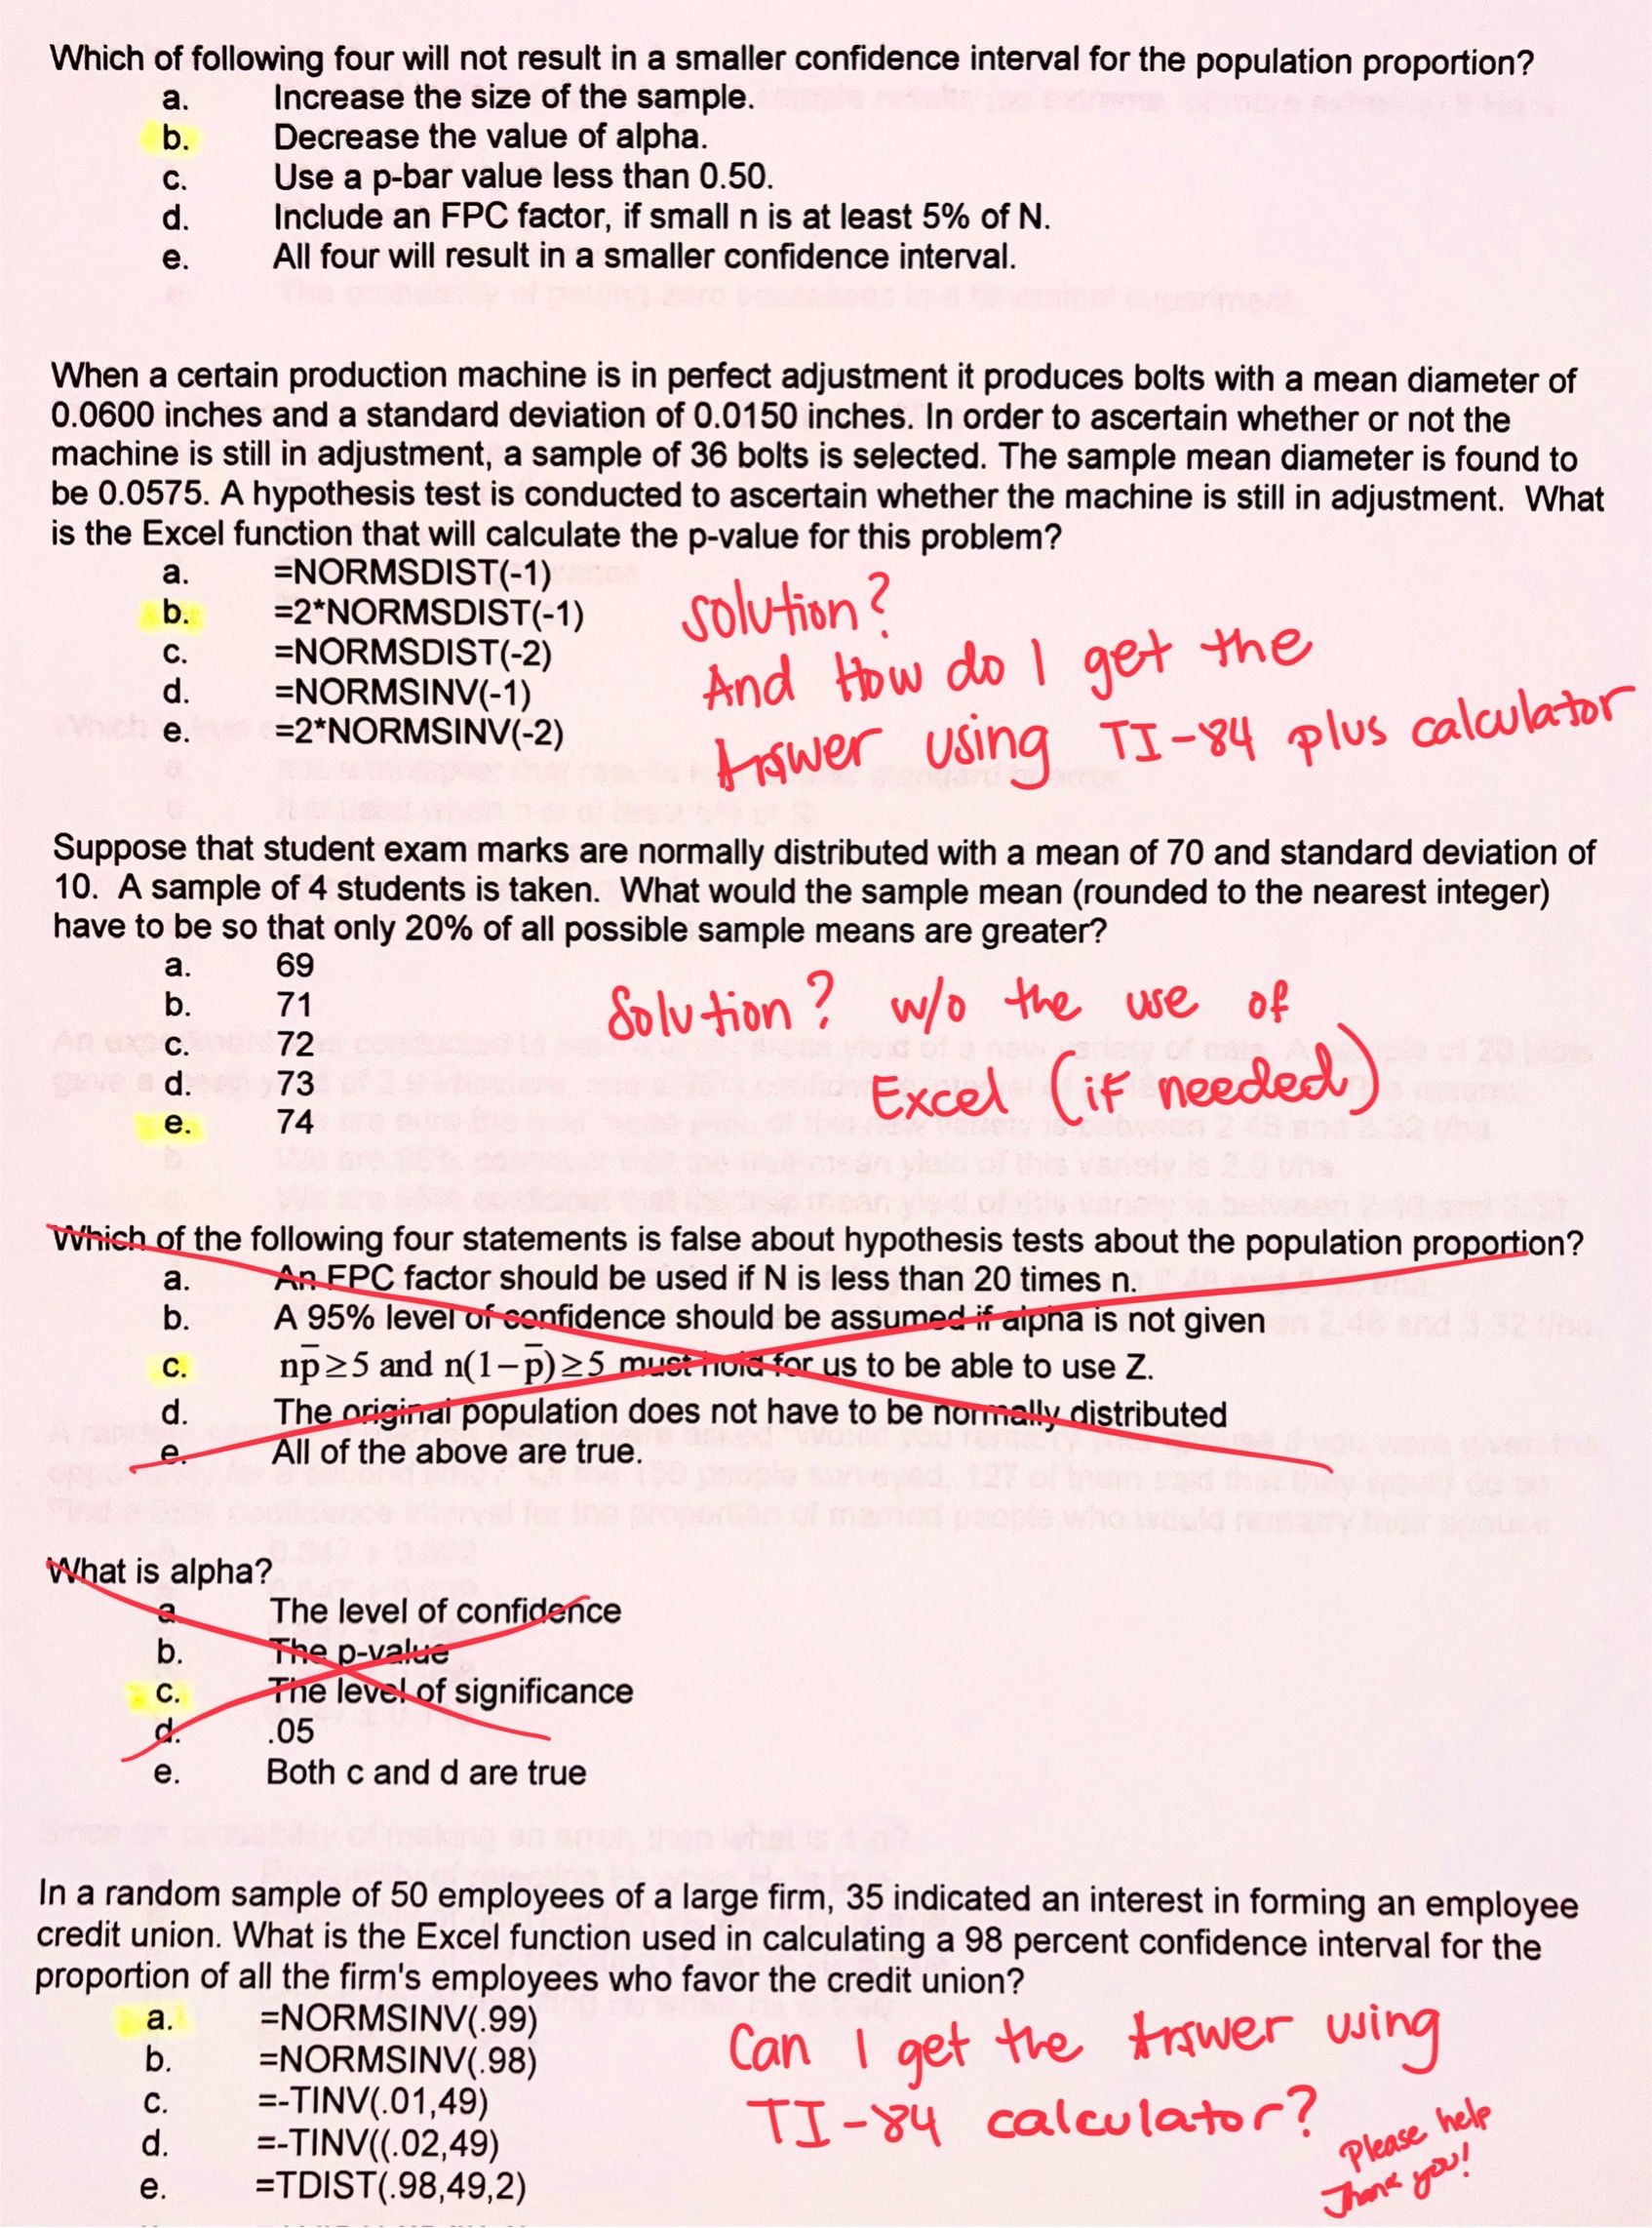 Which of following four will not result in a smaller confidence interval for the population proportion?
a. Increase the size of the sample.
b. Decrease the value of alpha.
c. Use a p-bar value less than 0.50.
d. Include an FPC factor, if small n is at least 5% of N.
e. All four will result in a smaller confidence interval.
When a certain production machine is in perfect adjustment it produces bolts with a mean diameter of
0.0600 inches and a standard deviation of 0.0150 inches. In order to ascertain whether or not the
machine is still in adjustment, a sample of 36 bolts is selected. The sample mean diameter is found to
be 0.0575. A hypothesis test is conducted to ascertain whether the machine is still in adjustment. What
is the Excel function that will calculate the p-value for this problem?
a. =NORMSDIST(-1)
b. =2*NORMSDIST(-1)
c. =NORMSDIST(-2)
d. =NORMSINV(-1)
e. =2*NORMSINV(-2)
Solution?
And How do I get the
Answer using TI-84 plus calculator
Suppose that student exam marks are normally distributed with a mean of 70 and standard deviation of
10. A sample of 4 students is taken. What would the sample mean (rounded to the nearest integer)
have to be so that only 20% of all possible sample means are greater?
a. 69
b. 71
c. 72
d. 73
e. 74
Solution? w/o the use of
Excel (if needed)
Which of the following four statements is false about hypothesis tests about the population proportion?
a. An FPC factor should be used if N is less than 20 times n.
b. A 95% level of confidence should be assumed if alpha is not given
c. np̅≥5 and n(1−p̅)≥5 must hold for us to be able to use Z.
d. The original population does not have to be normally distributed
e. All of the above are true.
What is alpha?
a. The level of confidence
b. The p-value
c. The level of significance
d. .05
e. Both c and d are true
In a random sample of 50 employees of a large firm, 35 indicated an interest in forming an employee
credit union. What is the Excel function used in calculating a 98 percent confidence interval for the
proportion of all the firm's employees who favor the credit union?
a. =NORMSINV(.99)
b. =NORMSINV(.98)
c. =-TINV(.01,49)
d. =-TINV((.02,49)
e. =TDIST(.98,49,2)
Can I get the Answer using
TI-84 calculator?
Please help
Thank you!